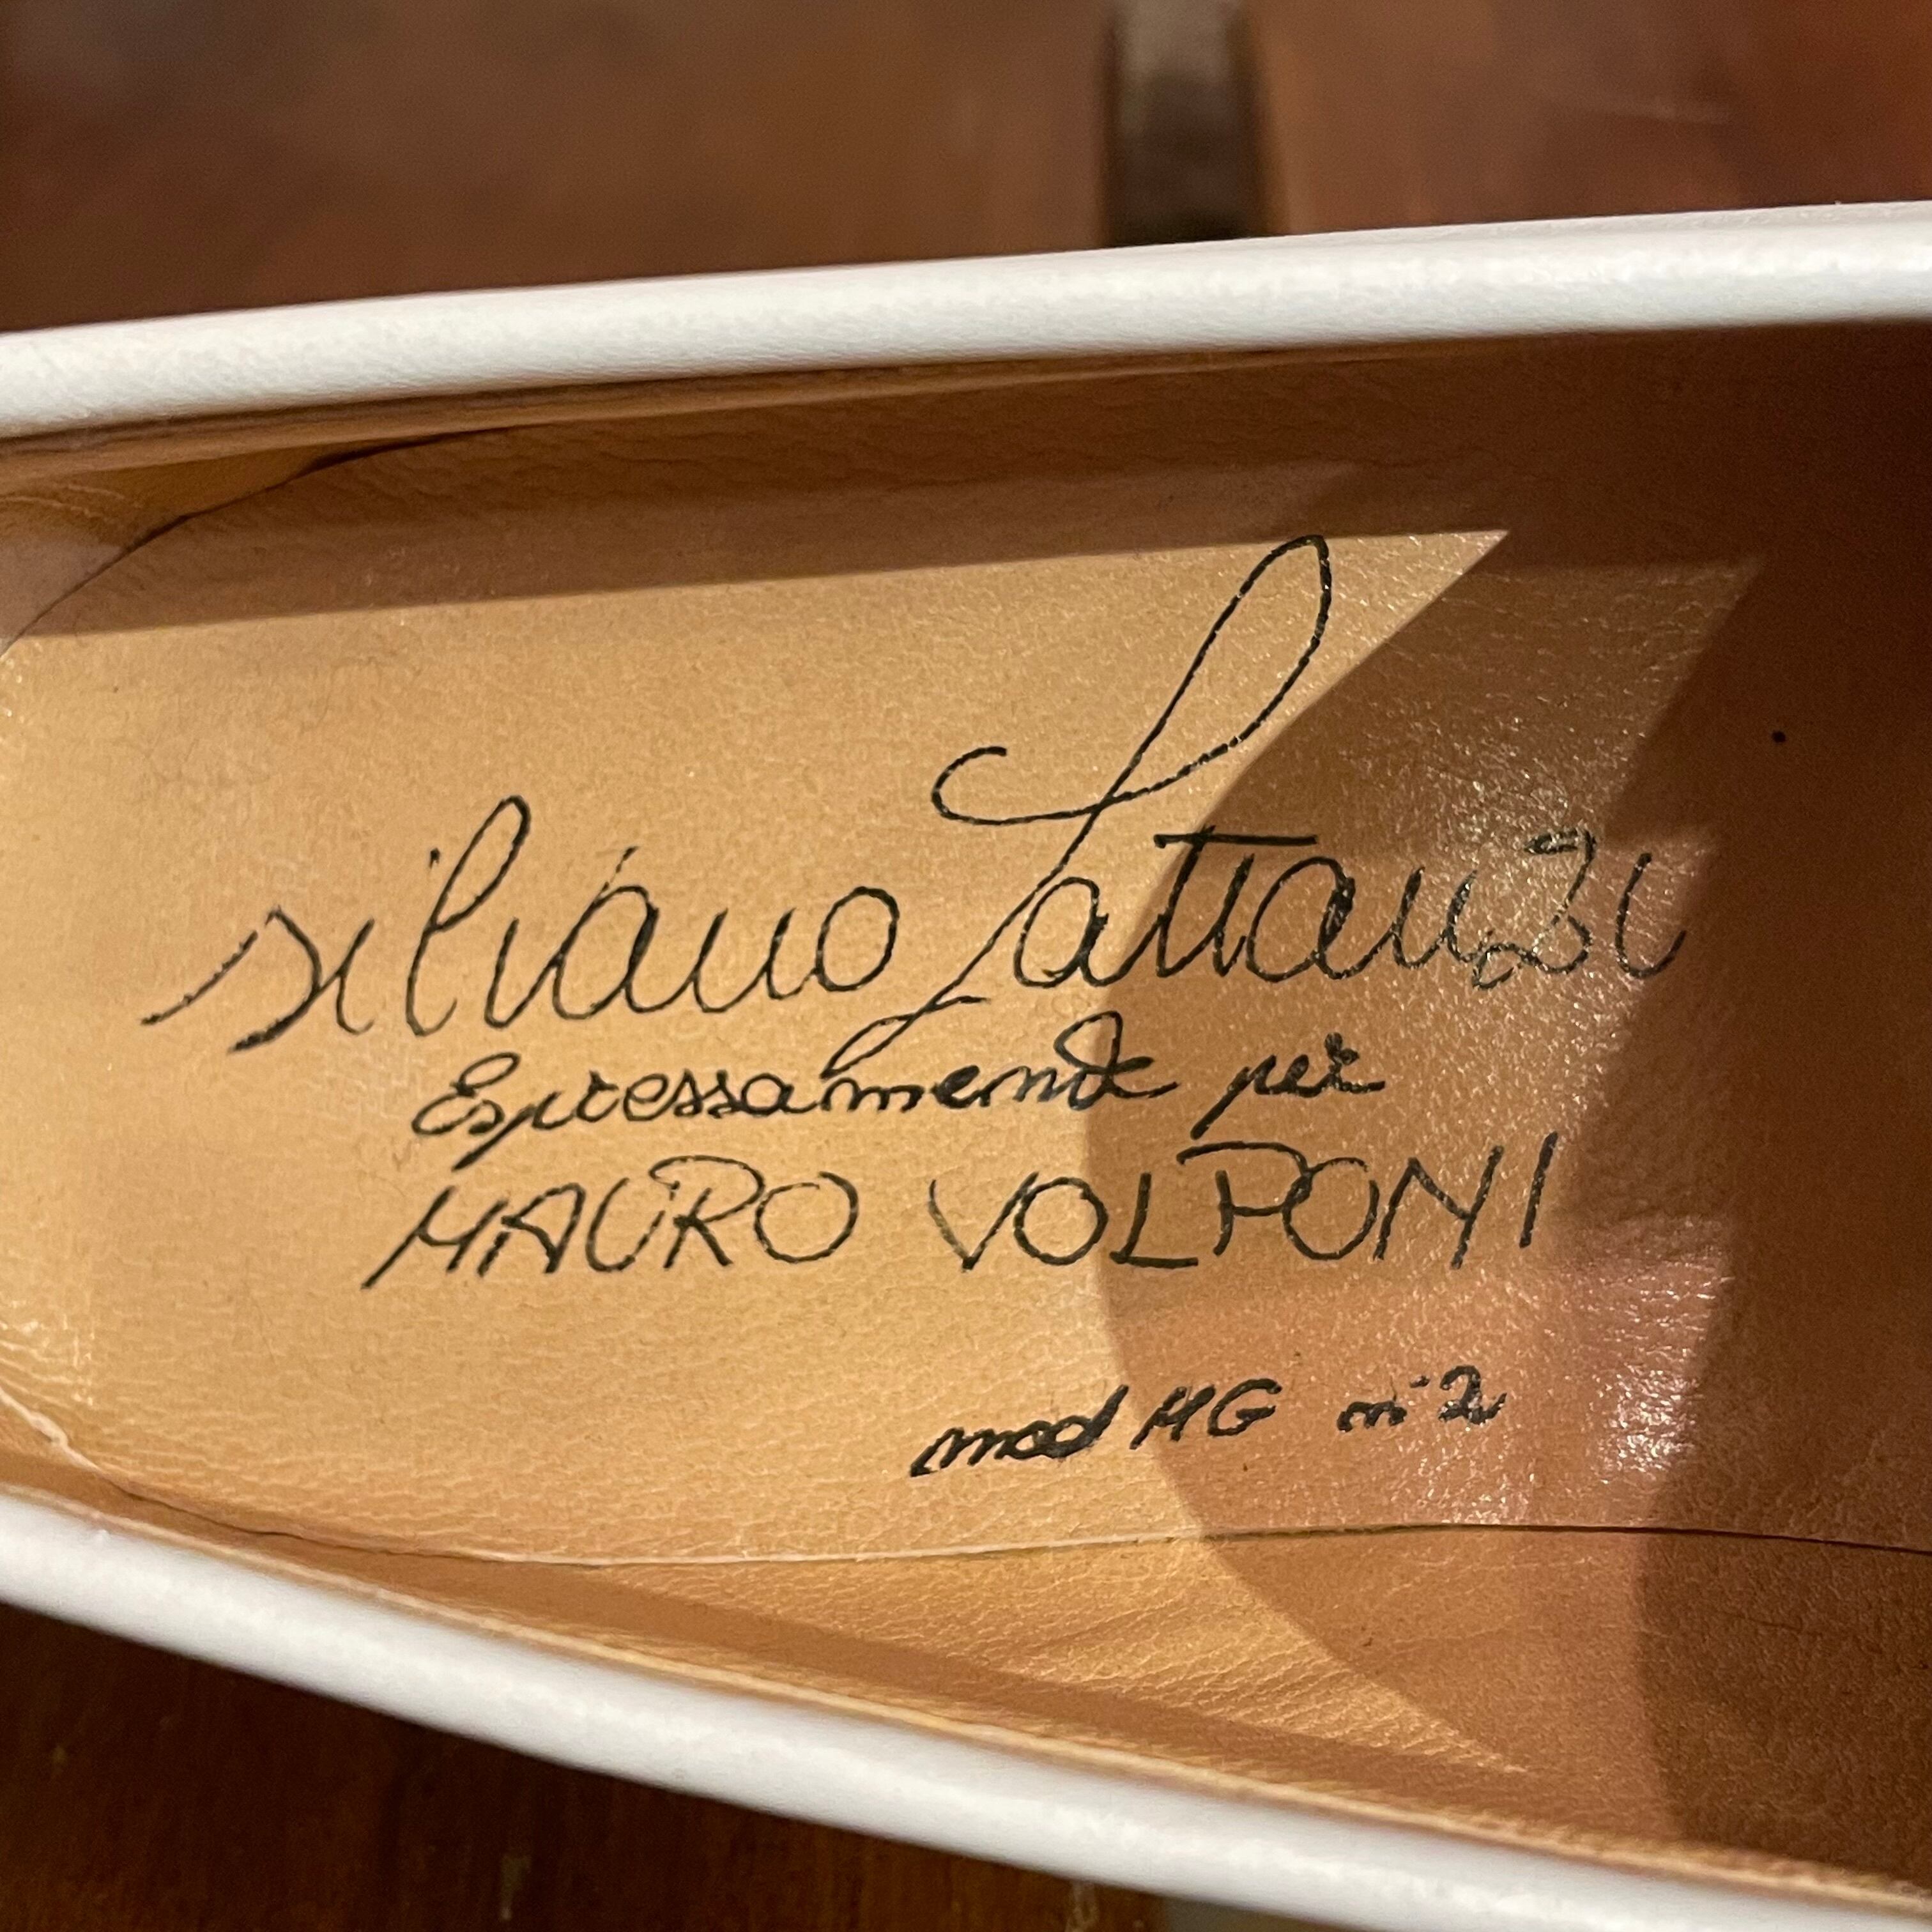 Silvano Lattanzi
Espressamente per
MAURO VOLPONI
mod MG n° 2